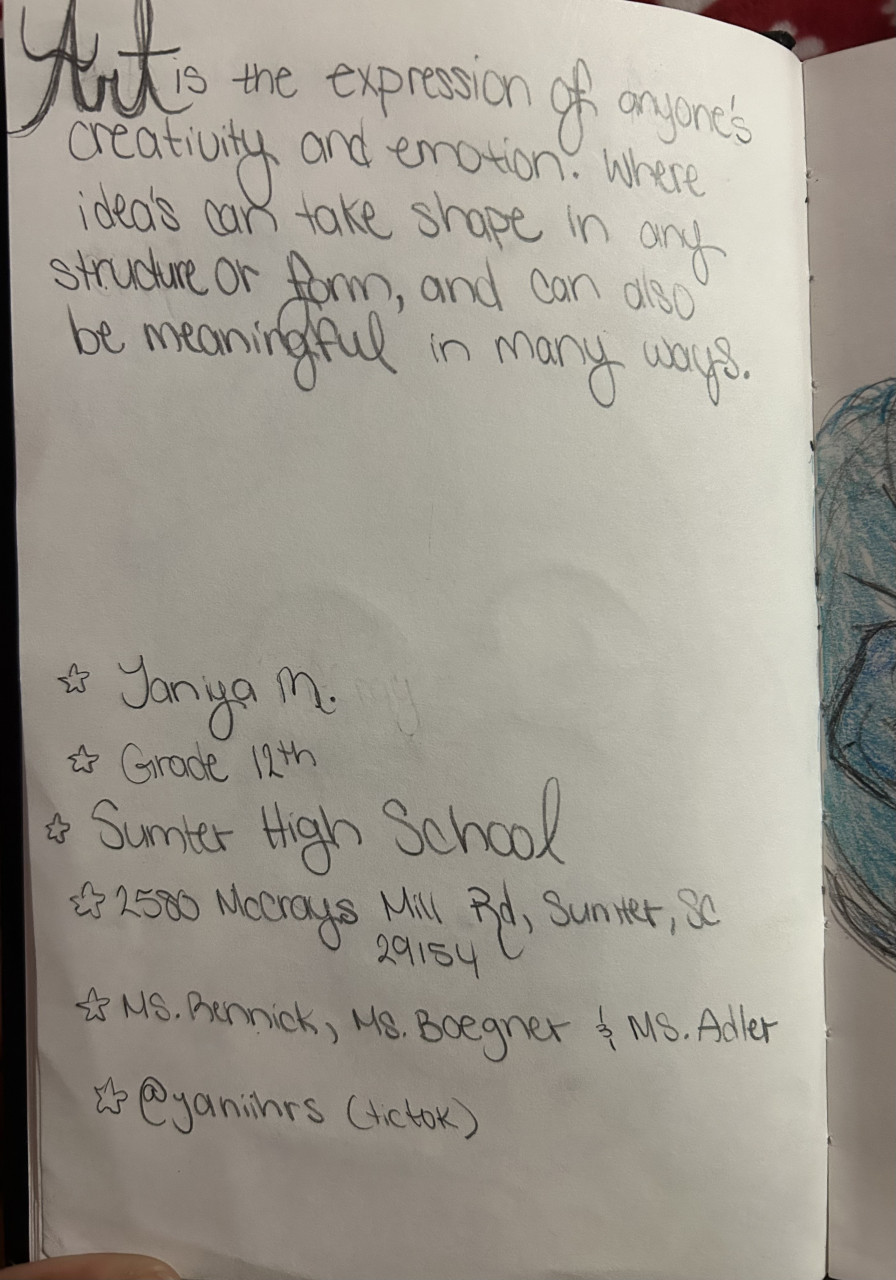 Art is the expression of anyone's
creativity and emotion. Where
idea's can take shape in any
structure or form, and can also
be meaningful in many ways.
☆ Yaniya M.
☆ Grade 12th
☆ Sumter High School
☆ 2580 McCrays Mill Rd, Sumter, SC
29154
☆ MS. Rennick, Ms. Boegner & MS. Adler
☆ @yaniihrs (tictok)